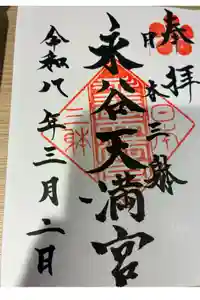 奉拝
日本三躰
永谷天満宮
令和八年三月二日